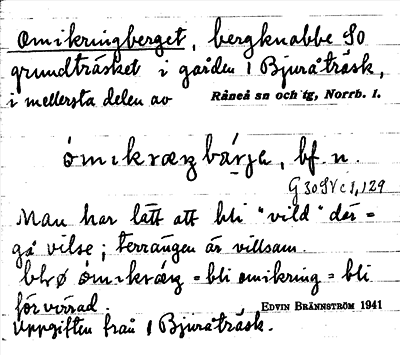 Omikringberget, bergknabbe SO
grundträsket i gården 1 Bjuråträsk,
i mellersta delen av Råneå sn och tg, Norrb. l.
ómıkræŋbær̀jə, bf. n.
G 30 SV c 1, 129
Man har lätt att bli "vild" där =
gå vilse; terrängen är villsam.
ómıkræŋ = bli omikring = bli
förvirrad. EDVIN BRÄNNSTRÖM 1941
Uppgiften från 1 Bjuråträsk.